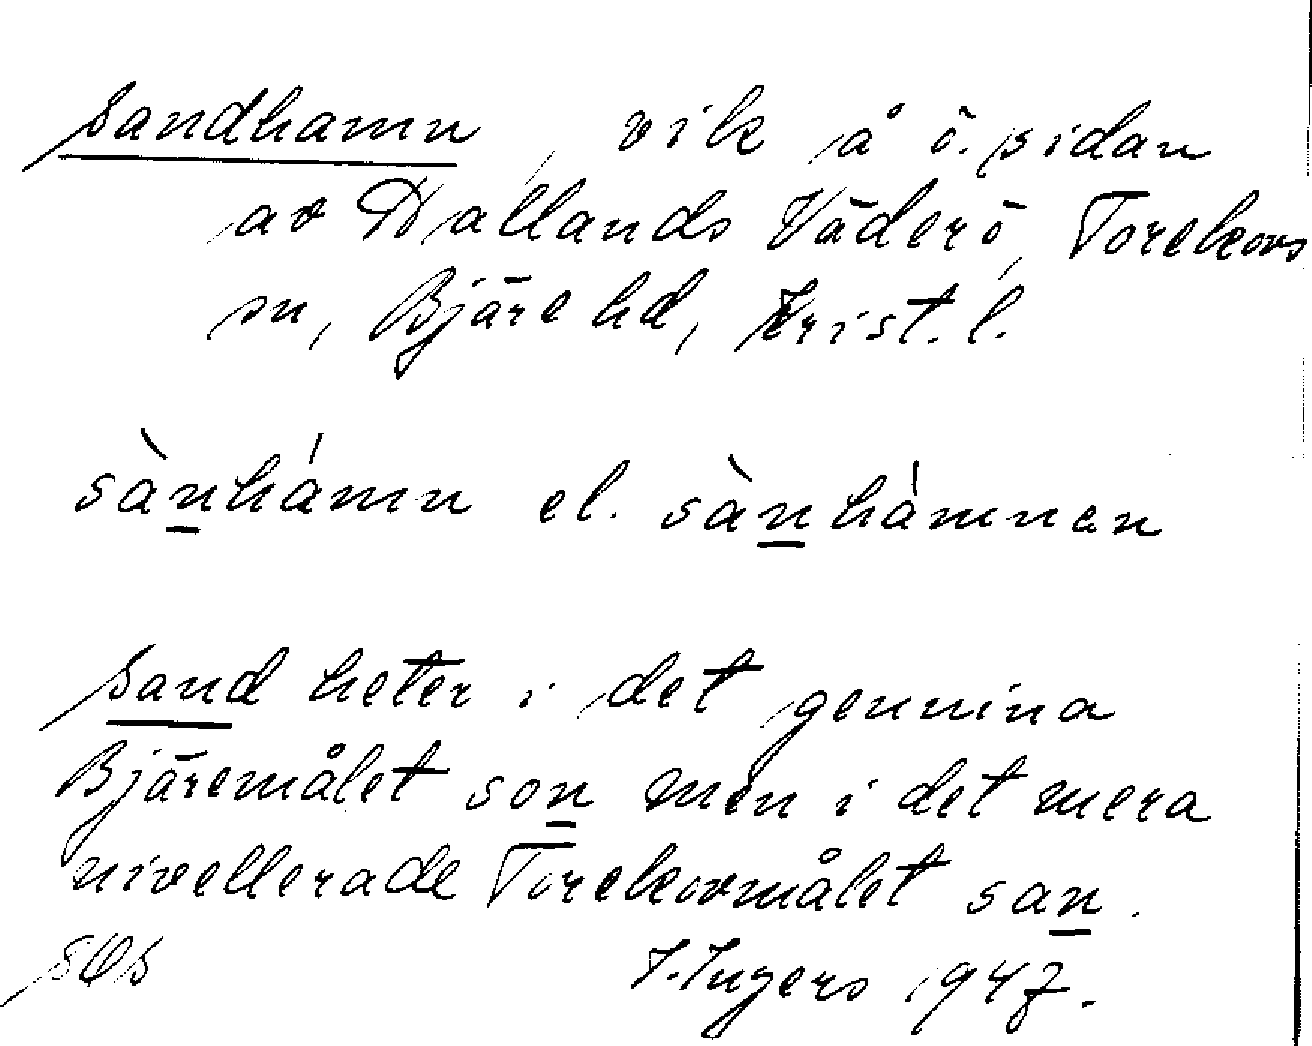 Sandhamn, vik å ö. sidan
av Hallands Väderö, Torekovs
sn, Bjäre hd, Krist. l.
sànhámn el. sànhámnen
Sand heter i det genuina
Bjäremålet son men i det mera
nivellerade Torekovmålet san.
I. Ingers 1947.